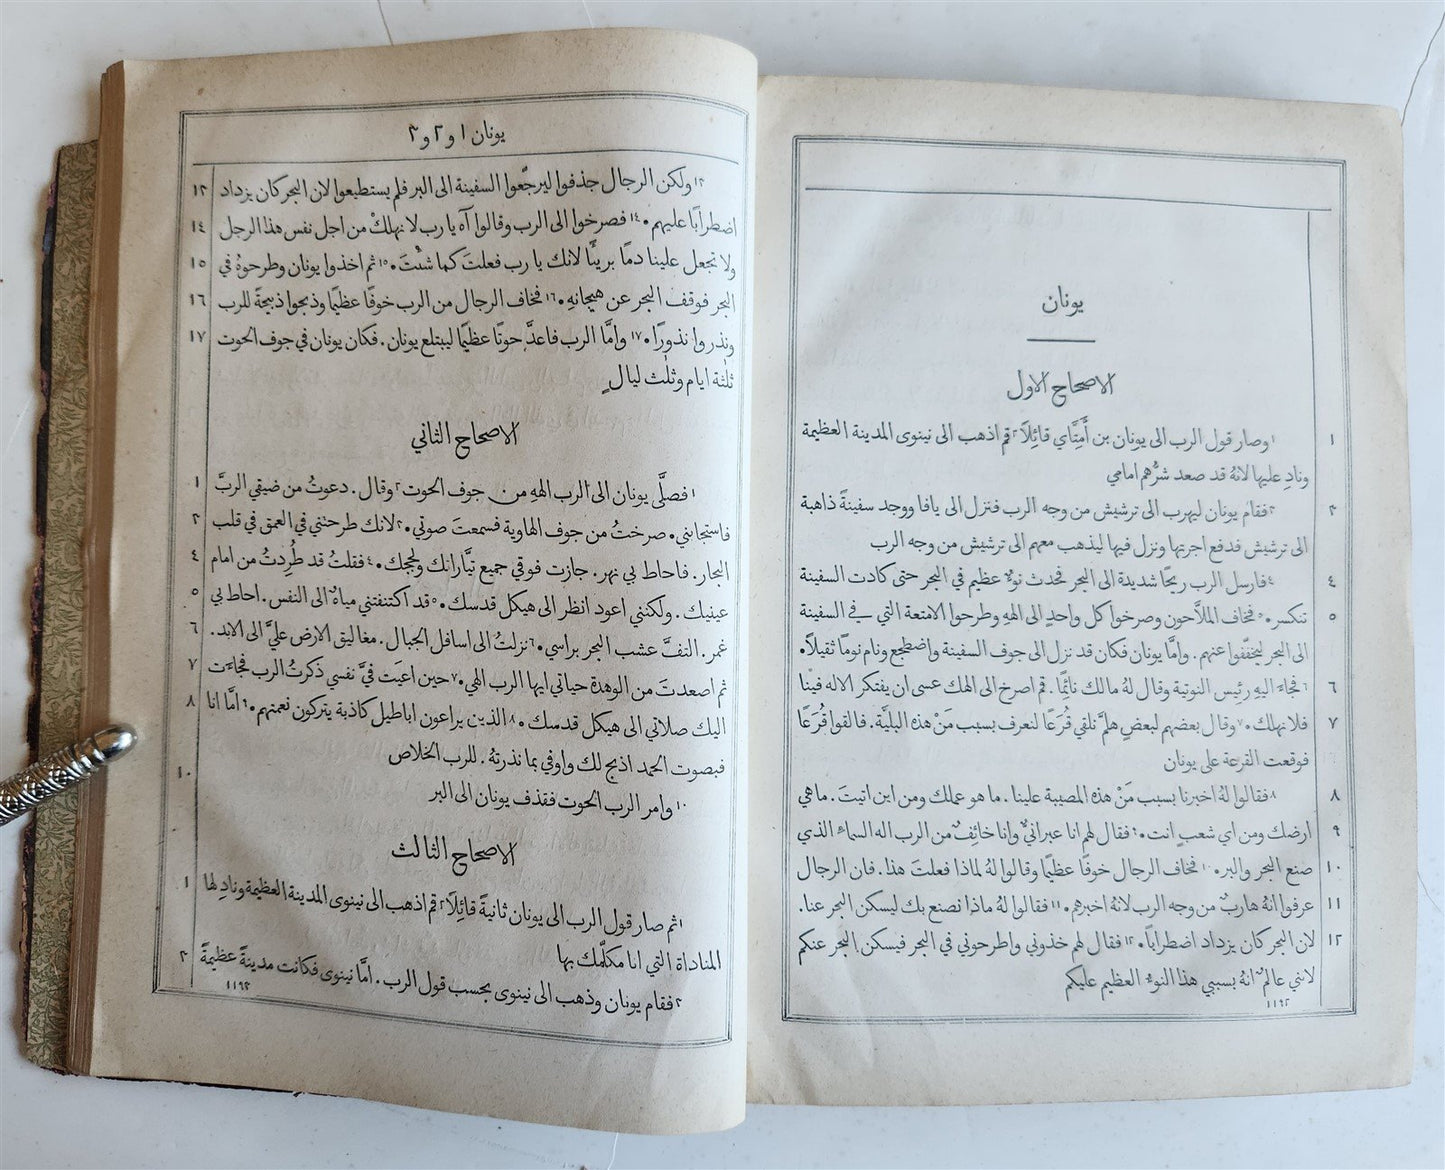 يونان
الاصحاح الاول
١ ١وصار قول الرب الى يونان بن أَمِتَّاي قائِلًا ٢قم اذهب الى نينوى المدينة العظيمة
ونادِ عليها لانهُ قد صعد شرُّهم امامي
٣ ٣فقام يونان ليهرب الى ترشيش من وجه الرب فنزل الى يافا ووجد سفينةً ذاهبة
الى ترشيش فدفع اجرتها ونزل فيها ليذهب معهم الى ترشيش من وجه الرب
٤ ٤فارسل الرب ريحًا شديدة الى البحر فحدث نوءٌ عظيم في البحر حتى كادت السفينة
٥ تنكسر. ٥فخاف الملَّاحون وصرخوا كل واحدٍ الى الههِ وطرحوا الامتعة التي في السفينة
الى البحر ليخفّفوا عنهم. وامَّا يونان فكان قد نزل الى جوف السفينة واضطجع ونام نومًا ثقيلًا.
٦ ٦فجاءَ اليهِ رئِيس النوتية وقال لهُ ما لك نائِمًا. قم اصرخ الى الهك عسى ان يفتكر الاله فينا
٧ فلا نهلك. ٧وقال بعضهم لبعضٍ هلمَّ نلقي قُرَعًا لنعرف بسبب مَنْ هذه البليَّة. فالقوا قُرَعًا
فوقعت القرعة على يونان
٨ ٨فقالوا لهُ اخبرنا بسبب مَنْ هذه المصيبة علينا. ما هو عملك ومن اين اتيتَ. ما هي
٩ ارضك ومن اي شعبٍ انت. ٩فقال لهم انا عبرانيٌّ وانا خائِفٌ من الرب اله السماءِ الذي
١٠ صنع البحر والبر. ١٠فخاف الرجال خوفًا عظيمًا وقالوا لهُ لماذا فعلتَ هذا. فان الرجال
١١ عرفوا انهُ هاربٌ من وجه الرب لانهُ اخبرهم. ١١فقالوا لهُ ماذا نصنع بك ليسكن البحر عنا.
١٢ لان البحر كان يزداد اضطرابًا. ١٢فقال لهم خذوني واطرحوني في البحر فيسكن البحر عنكم
لانني عالمٌ انهُ بسببي هذا النوءُ العظيم عليكم
١١٩٢
يونان ١ و ٢ و ٣
١٣ ١٣ولكن الرجال جذفوا ليرجّعوا السفينة الى البر فلم يستطيعوا لان البحر كان يزداد
١٤ اضطرابًا عليهم. ١٤فصرخوا الى الرب وقالوا آهِ يا رب لا نهلكْ من اجل نفس هذا الرجل
١٥ ولا تجعل علينا دمًا بريئًا لانك يا رب فعلتَ كما شئتَ. ١٥ثم اخذوا يونان وطرحوهُ في
١٦ البحر فوقف البحر عن هيجانهِ. ١٦فخاف الرجال من الرب خوفًا عظيمًا وذبحوا ذبيحةً للرب
١٧ ونذروا نذورًا. ١٧وامَّا الرب فاعدَّ حوتًا عظيمًا ليبتلع يونان. فكان يونان في جوف الحوت
ثلٰثة ايام وثلٰث ليالٍ
الاصحاح الثاني
١ ١فصلَّى يونان الى الرب الههِ من جوف الحوت ٢وقال. دعوتُ من ضيقي الربَّ
٣ فاستجابني. صرختُ من جوف الهاوية فسمعتَ صوتي. ٣لانك طرحتني في العمق في قلب
٤ البحار. فاحاط بي نهر. جازت فوقي جميع تيَّاراتك ولججك. ٤فقلتُ قد طُردتُ من امام
٥ عينيك. ولكنني اعود انظر الى هيكل قدسك. ٥قد اكتنفتني مياهٌ الى النفس. احاط بي
٦ غمر. التفَّ عشب البحر براسي. ٦نزلتُ الى اسافل الجبال. مغاليق الارض عليَّ الى الابد.
٧ ثم اصعدتَ من الوهدة حياتي ايها الرب الهي. ٧حين اعيَت فيَّ نفسي ذكرتُ الرب فجاءَت
٨ اليك صلاتي الى هيكل قدسك. ٨الذين يراعون اباطيل كاذبة يتركون نعمتهم. ٩امَّا انا
فبصوت الحمد اذبح لك واوفي بما نذرتهُ. للرب الخلاص
١٠ ١٠وامر الرب الحوت فقذف يونان الى البر
الاصحاح الثالث
١ ١ثم صار قول الرب الى يونان ثانيةً قائِلًا ٢قم اذهب الى نينوى المدينة العظيمة ونادِ لها
المناداة التي انا مكلّمك بها
٣ ٣فقام يونان وذهب الى نينوى بحسب قول الرب. امَّا نينوى فكانت مدينةً عظيمةً
١١٩٣